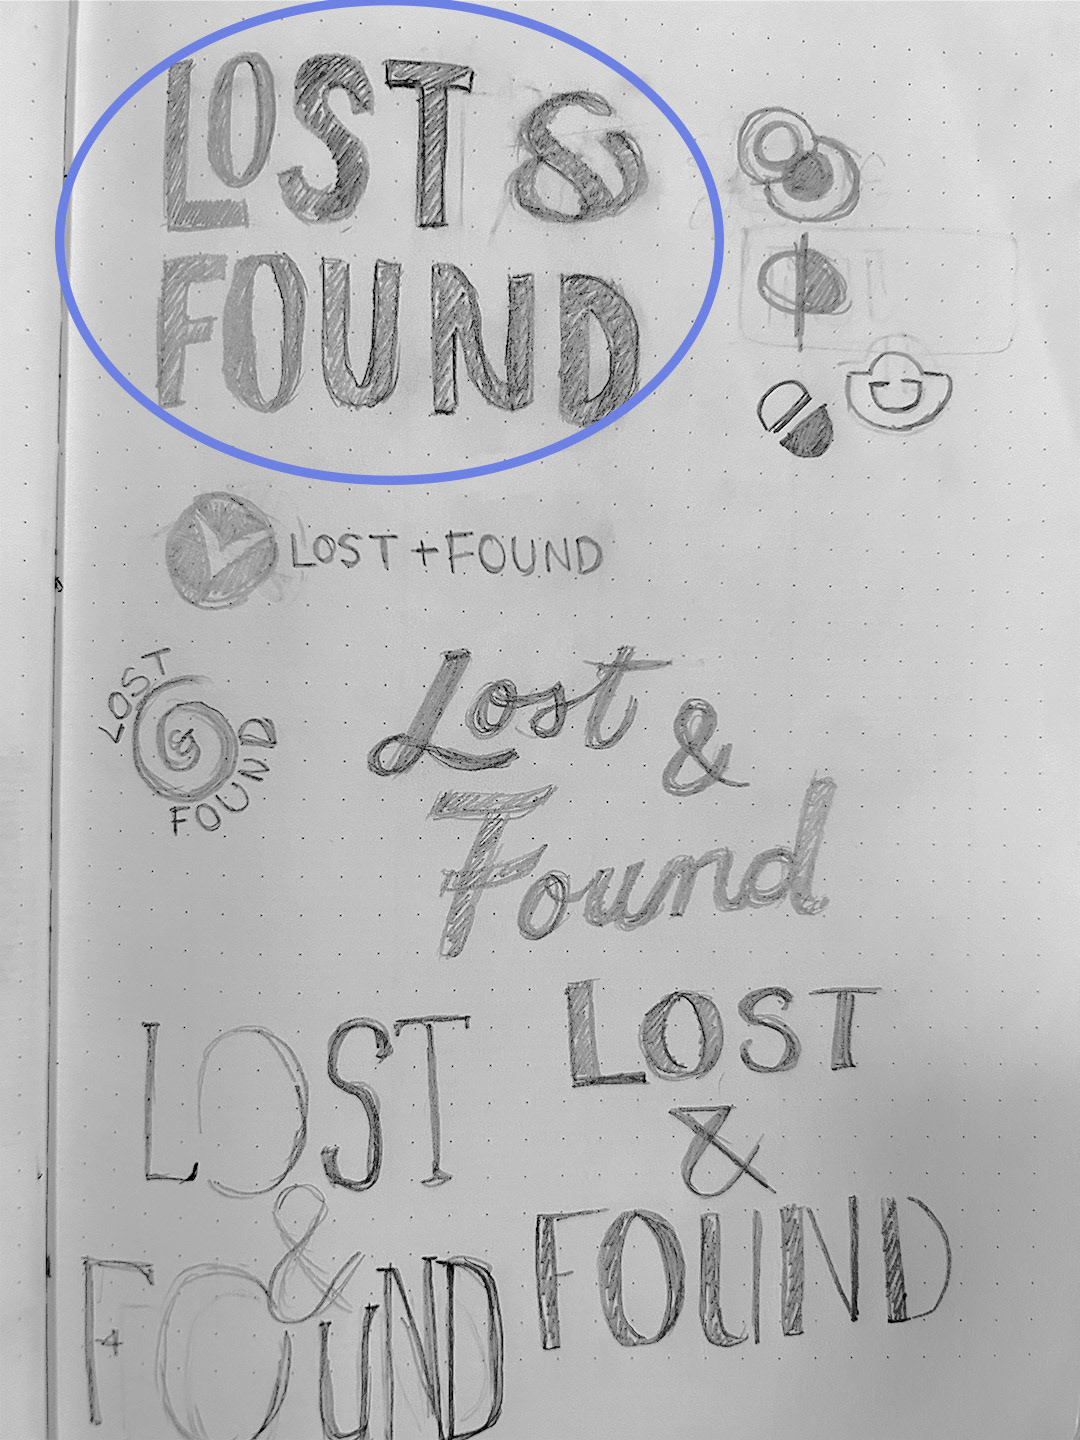 LOST &
FOUND
LOST + FOUND
LOST
&
FOUND
Lost &
Found
LOST
&
FOUND
LOST
&
FOUND